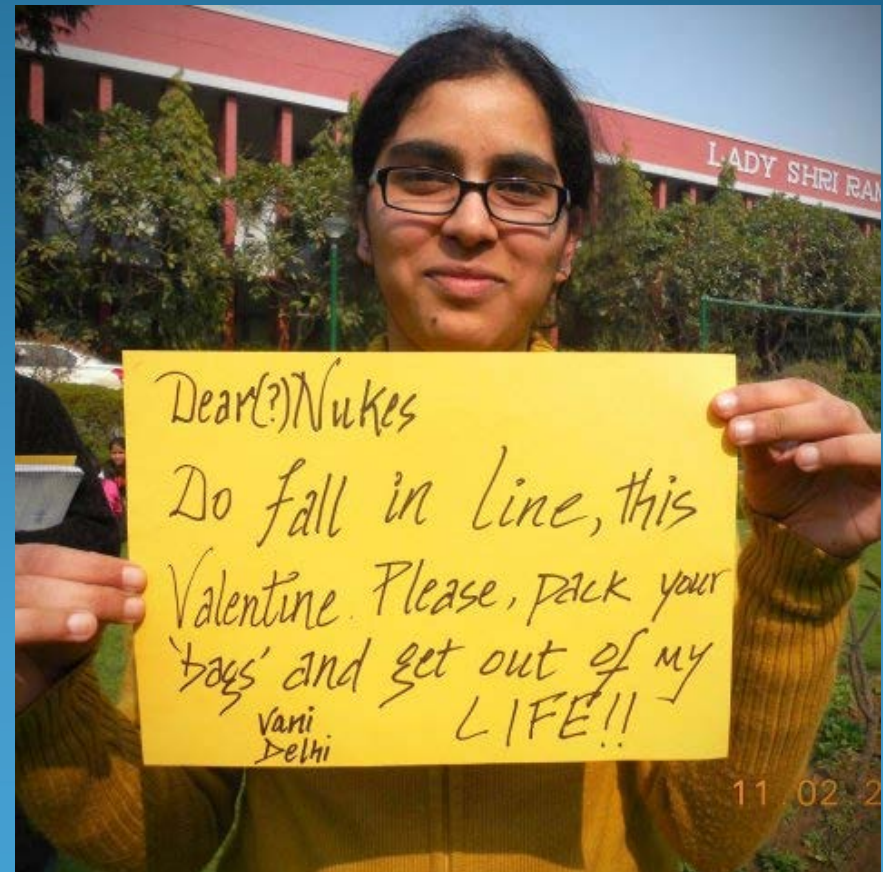 LADY SHRI RAM
Dear(?) Nukes
Do fall in line, this
Valentine. Please, pack your
'bags' and get out of my
LIFE!!
Vani
Delhi
11.02.2